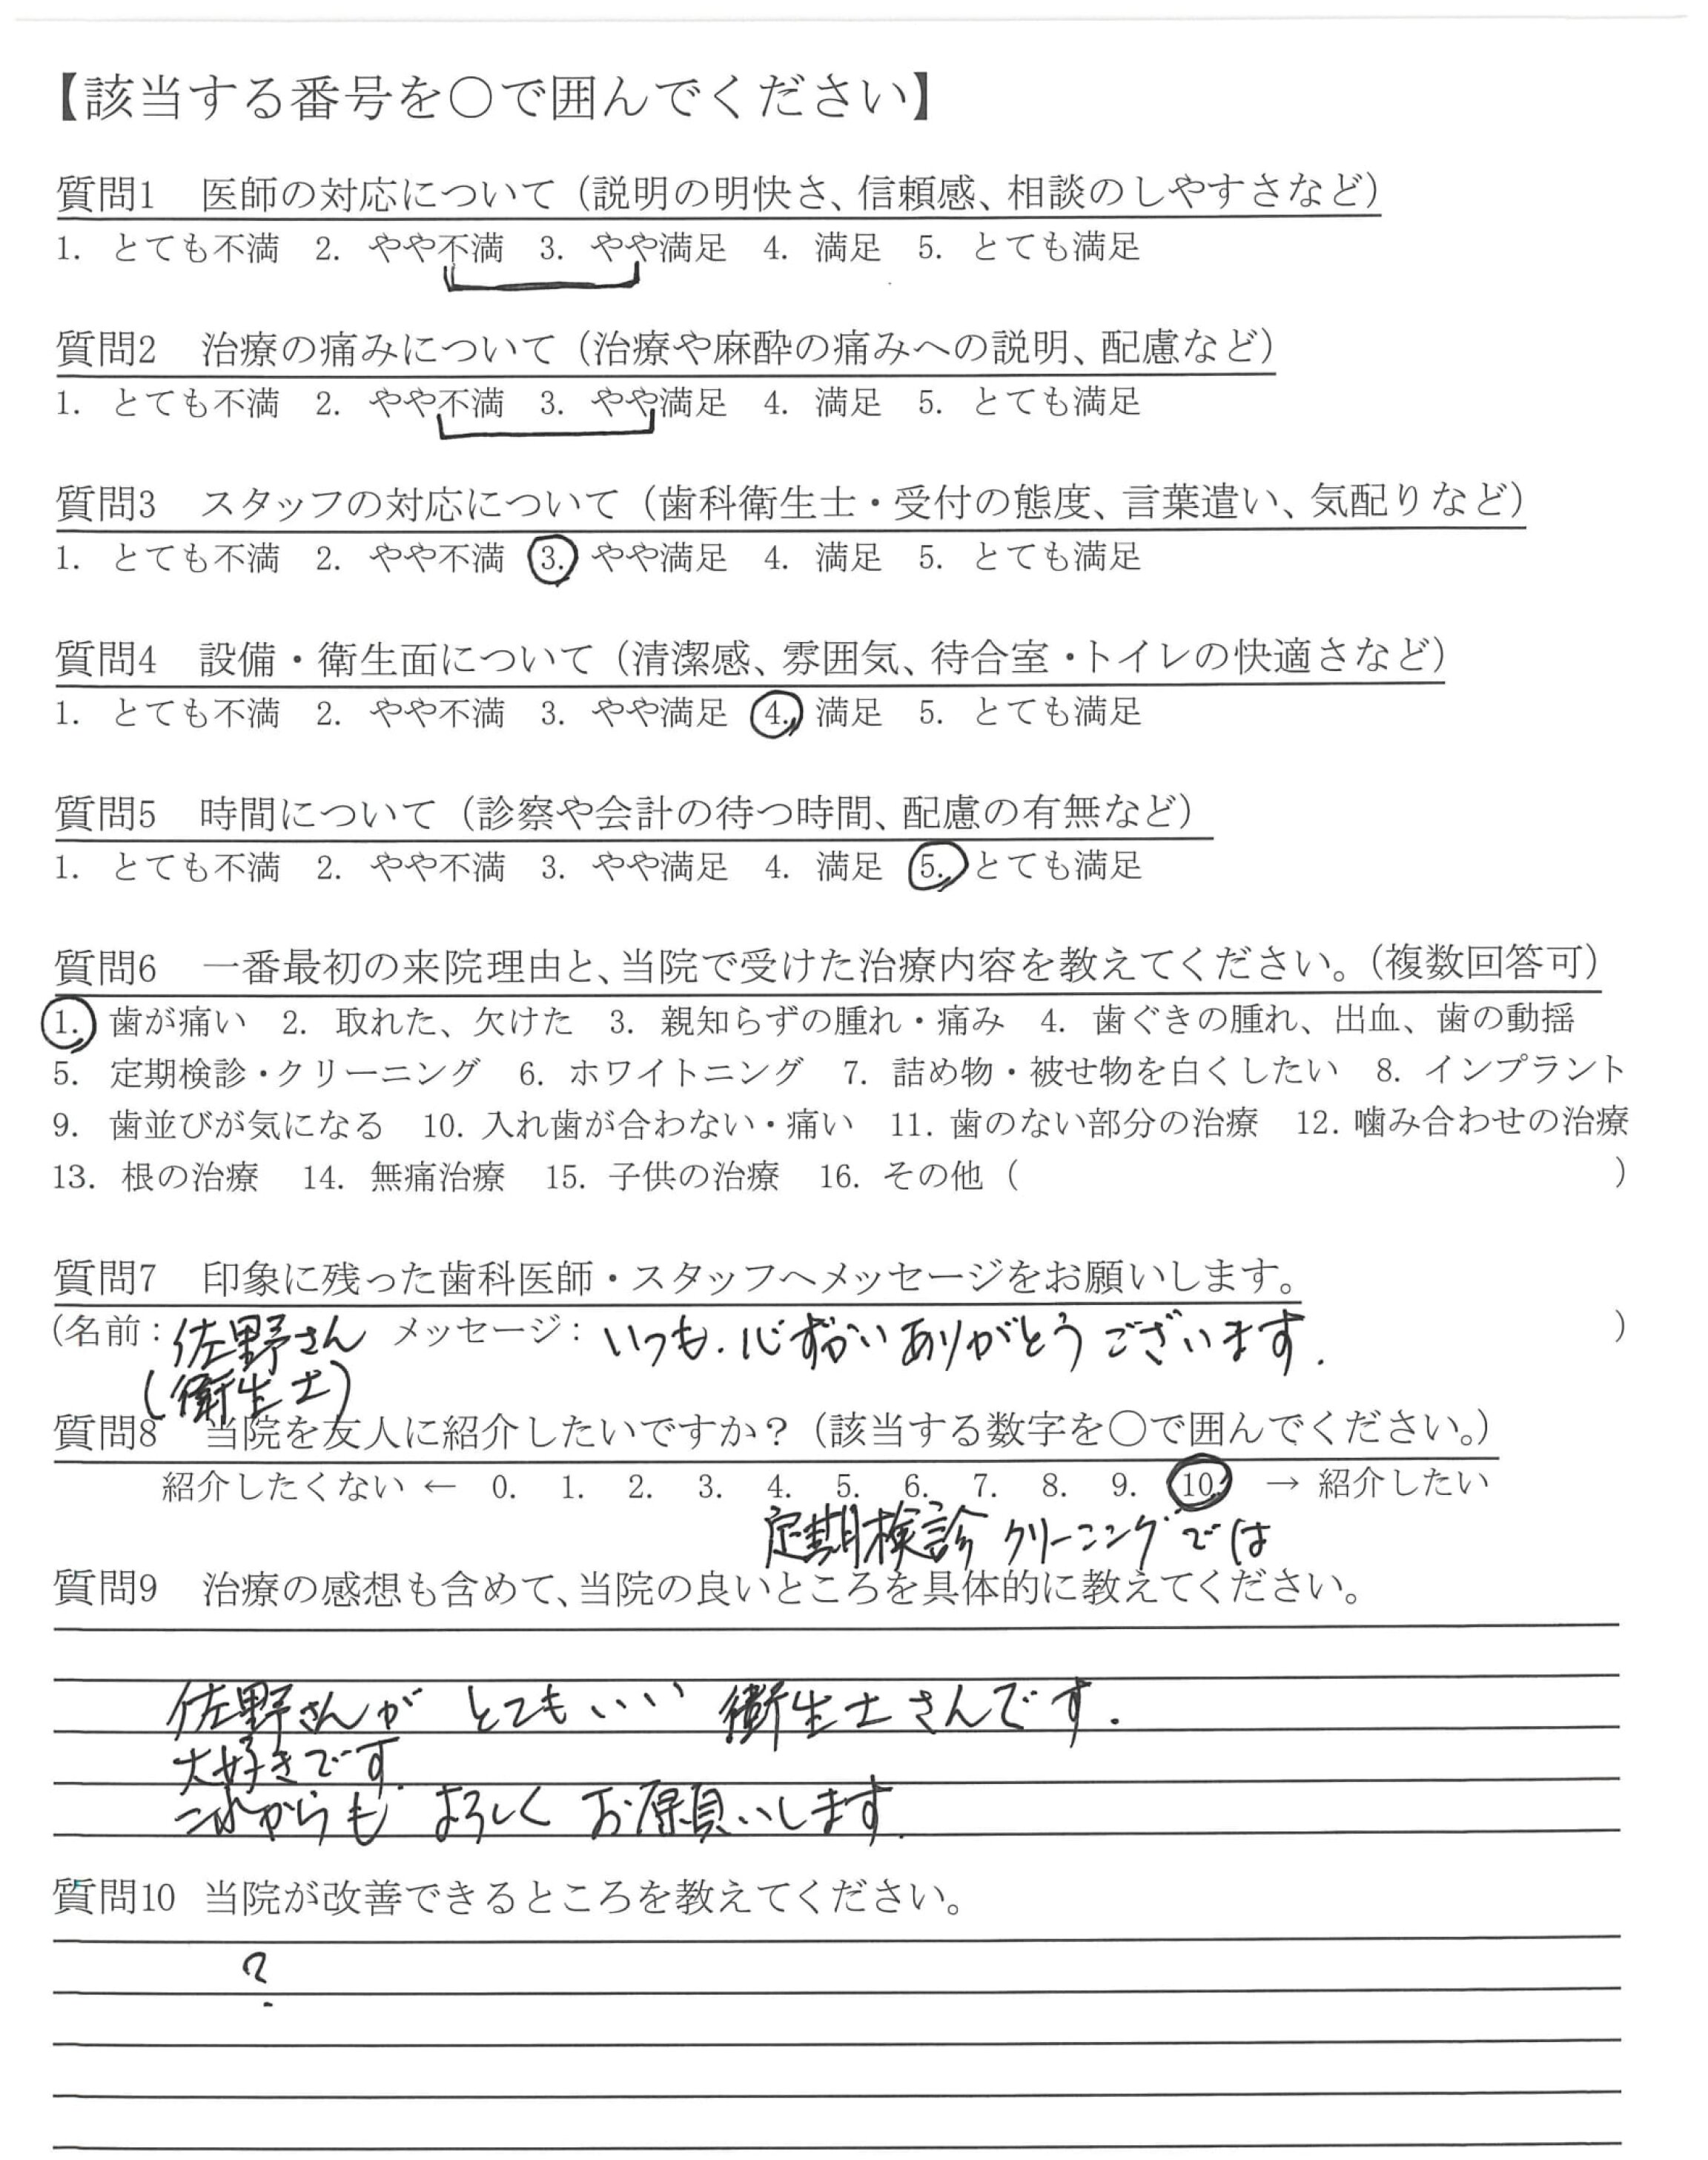 【該当する番号を〇で囲んでください】
質問1　医師の対応について（説明の明快さ、信頼感、相談のしやすさなど）
1. とても不満　2. やや不満　3. やや満足　4. 満足　5. とても満足
質問2　治療の痛みについて（治療や麻酔の痛みへの説明、配慮など）
1. とても不満　2. やや不満　3. やや満足　4. 満足　5. とても満足
質問3　スタッフの対応について（歯科衛生士・受付の態度、言葉遣い、気配りなど）
1. とても不満　2. やや不満　3. やや満足　4. 満足　5. とても満足
質問4　設備・衛生面について（清潔感、雰囲気、待合室・トイレの快適さなど）
1. とても不満　2. やや不満　3. やや満足　4. 満足　5. とても満足
質問5　時間について（診察や会計の待つ時間、配慮の有無など）
1. とても不満　2. やや不満　3. やや満足　4. 満足　5. とても満足
質問6　一番最初の来院理由と、当院で受けた治療内容を教えてください。（複数回答可）
1. 歯が痛い　2. 取れた、欠けた　3. 親知らずの腫れ・痛み　4. 歯ぐきの腫れ、出血、歯の動揺
5. 定期検診・クリーニング　6. ホワイトニング　7. 詰め物・被せ物を白くしたい　8. インプラント
9. 歯並びが気になる　10. 入れ歯が合わない・痛い　11. 歯のない部分の治療　12. 噛み合わせの治療
13. 根の治療　14. 無痛治療　15. 子供の治療　16. その他（　）
質問7　印象に残った歯科医師・スタッフへメッセージをお願いします。
（名前：佐野さん　メッセージ：いつも、心ずかいありがとうございます.　）
（衛生士）
質問8　当院を友人に紹介したいですか？（該当する数字を〇で囲んでください。）
紹介したくない ← 0. 1. 2. 3. 4. 5. 6. 7. 8. 9. 10. → 紹介したい
定期検診 クリーニングでは
質問9　治療の感想も含めて、当院の良いところを具体的に教えてください。
佐野さんが とてもいい 衛生士さんです.
大好きです.
これからも よろしく お願いします.
質問10　当院が改善できるところを教えてください。
?